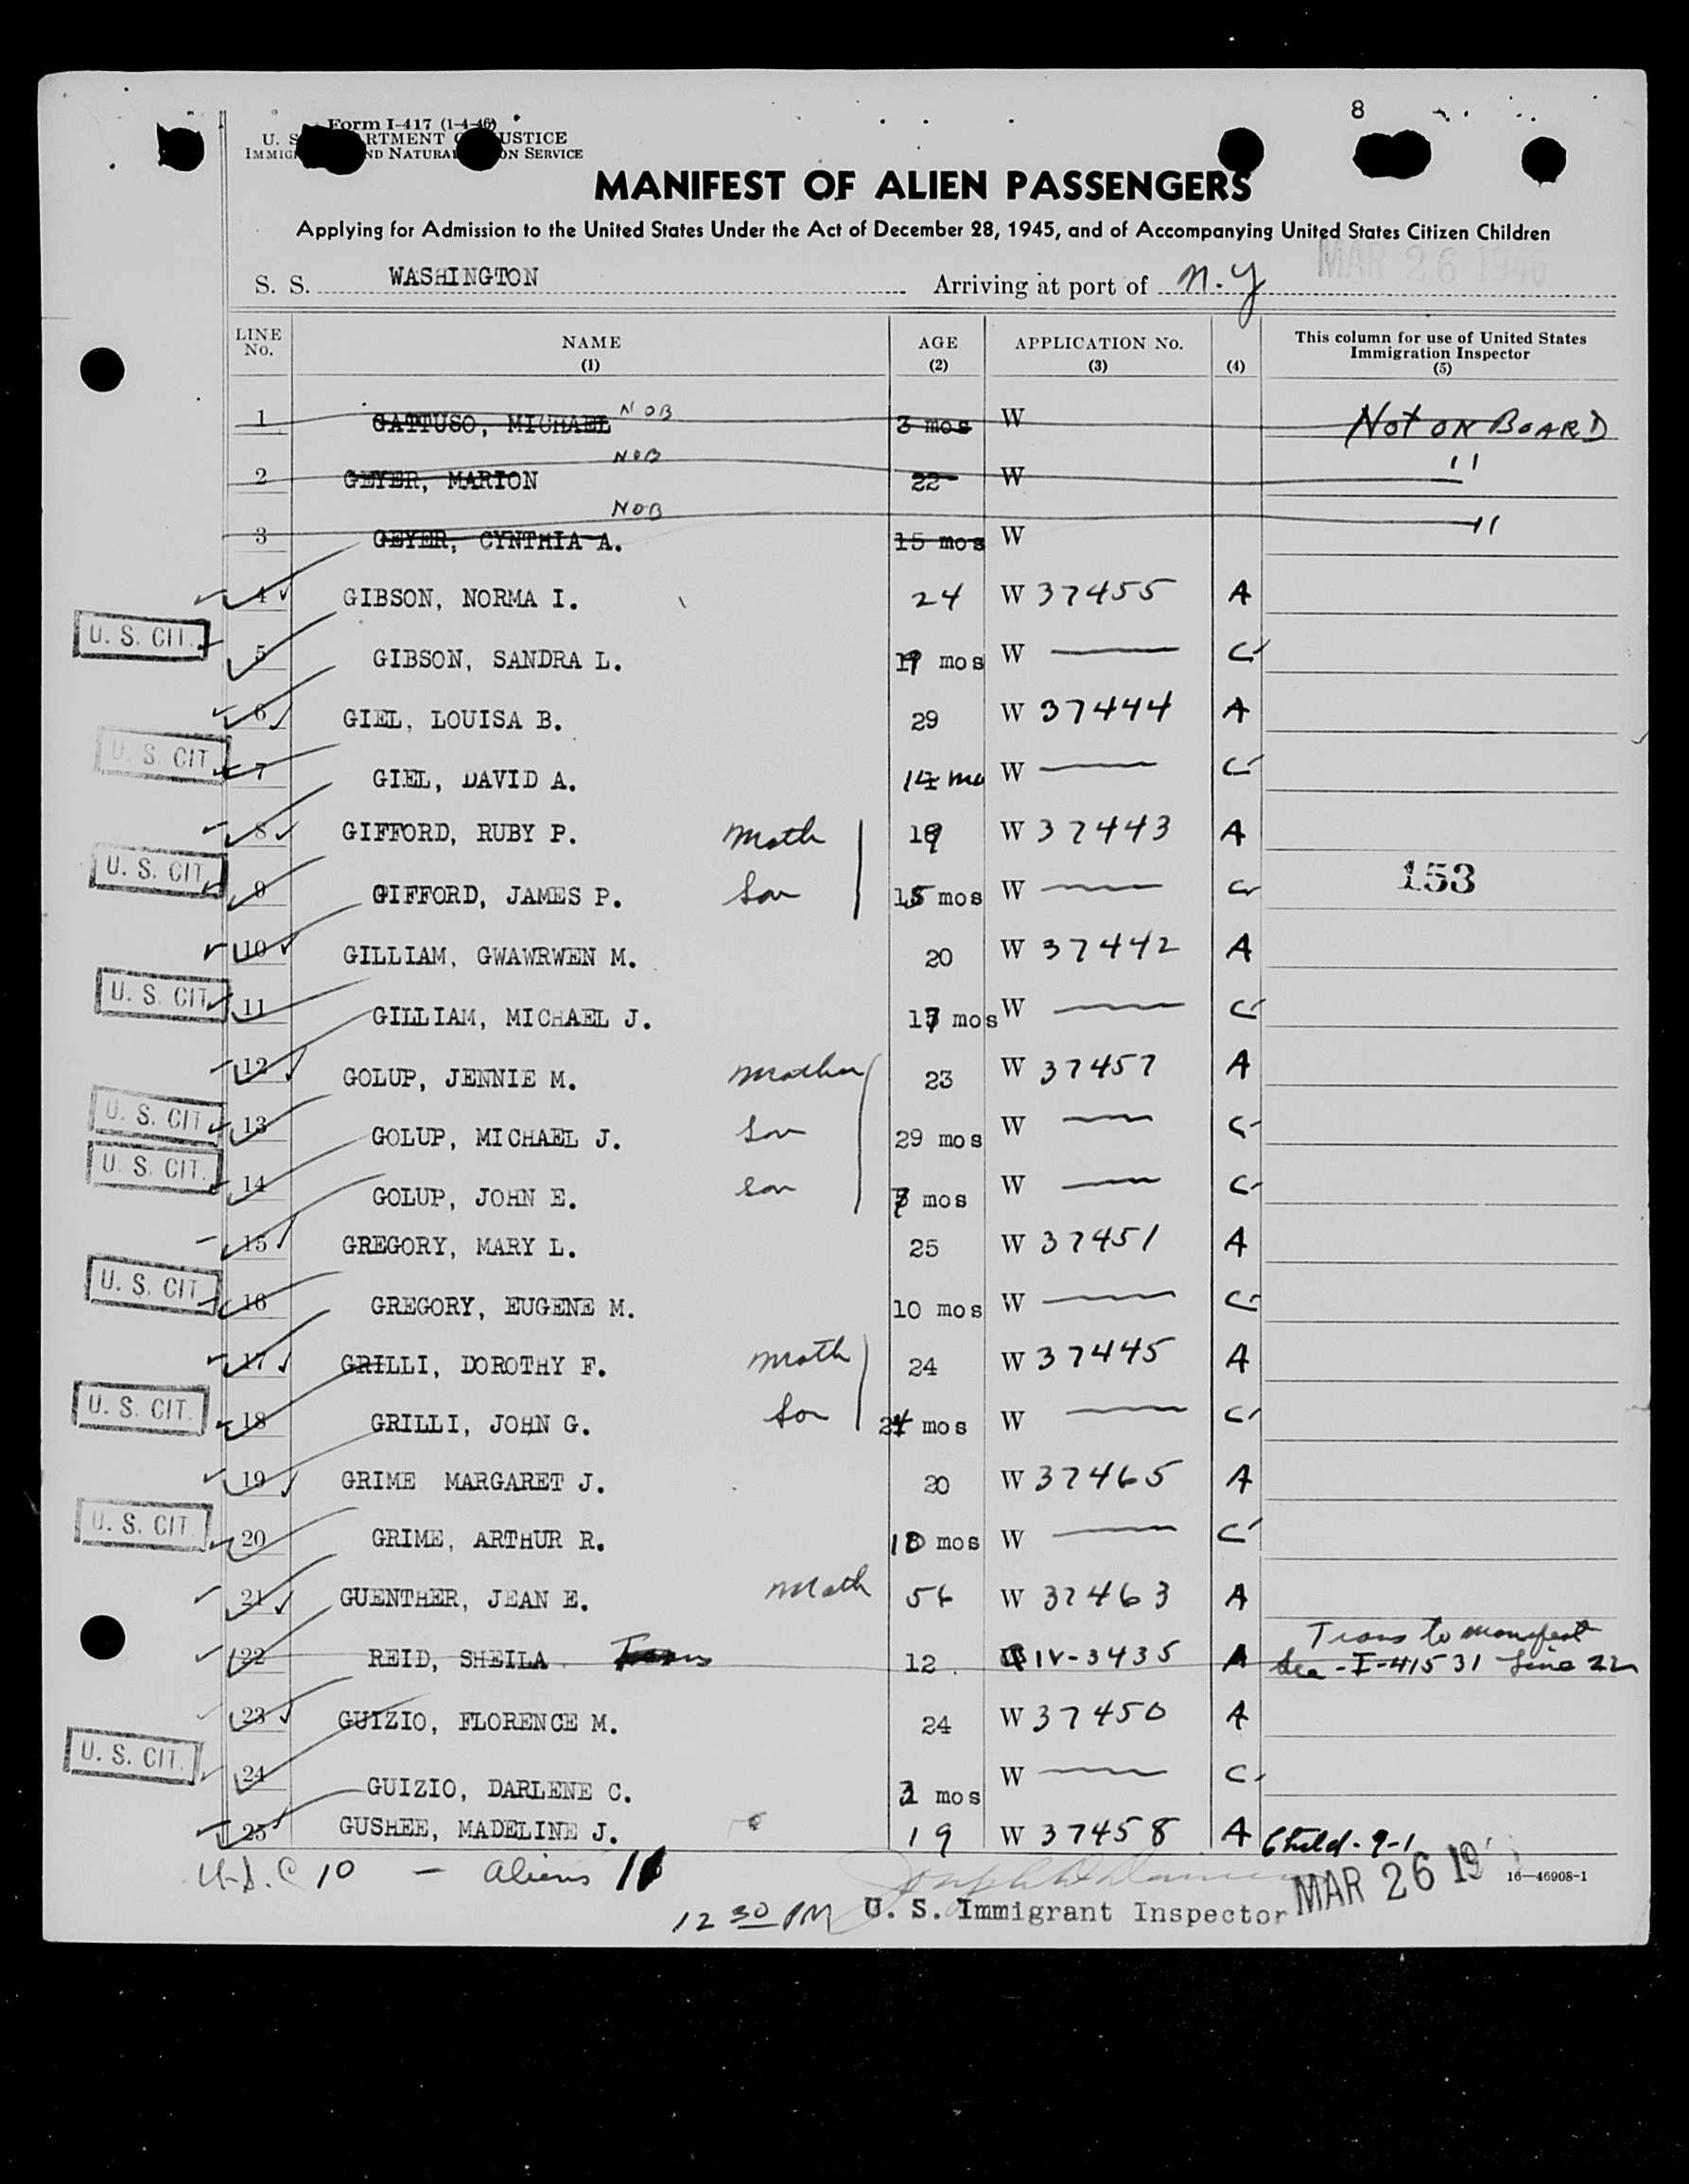 8
Form I-417 (1-4-46)
U. S. DEPARTMENT OF JUSTICE
IMMIGRATION AND NATURALIZATION SERVICE
MANIFEST OF ALIEN PASSENGERS
Applying for Admission to the United States Under the Act of December 28, 1945, and of Accompanying United States Citizen Children
MAR 26 1946
S. S. WASHINGTON Arriving at port of N.Y
LINE No. NAME (1) AGE (2) APPLICATION No. (3) (4) This column for use of United States Immigration Inspector (5)
1 GATTUSO, MICHAEL NOB 3 mos W Not on Board
2 GEYER, MARION NOB 22 W "
3 GEYER, CYNTHIA A. NOB 15 mos W "
4 GIBSON, NORMA I. 24 W 37455 A
U. S. CIT. 5 GIBSON, SANDRA L. mos W — C
6 GIEL, LOUISA B. 29 W 37444 A
U. S. CIT. 7 GIEL, DAVID A. 14 mo W — C
8 GIFFORD, RUBY P. Moth 19 W 37443 A
U. S. CIT. 9 GIFFORD, JAMES P. Son 15 mos W — C 153
10 GILLIAM, GWAWRWEN M. 20 W 37442 A
U. S. CIT. 11 GILLIAM, MICHAEL J. 17 mos W — C
12 GOLUP, JENNIE M. Mother 23 W 37457 A
U. S. CIT. 13 GOLUP, MICHAEL J. Son 29 mos W — C
U. S. CIT. 14 GOLUP, JOHN E. Son mos W — C
15 GREGORY, MARY L. 25 W 37451 A
U. S. CIT. 16 GREGORY, EUGENE M. 10 mos W — C
17 GRILLI, DOROTHY F. Moth 24 W 37445 A
U. S. CIT. 18 GRILLI, JOHN G. Son 24 mos W — C
19 GRIME MARGARET J. 20 W 37465 A
U. S. CIT. 20 GRIME, ARTHUR R. 10 mos W — C
21 GUENTHER, JEAN E. Moth W 37463 A
22 REID, SHEILA Trans 12 QIV-3435 A Trans to manifest
See - I-415 31 Line 22
23 GUIZIO, FLORENCE M. 24 W 37450 A
U. S. CIT. 24 GUIZIO, DARLENE C. mos W — C
25 GUSHEE, MADELINE J. 19 W 37458 A Child - 9-1
U.S.C 10 — Aliens 11
MAR 26 19
16—46908-1
12 30 PM U. S. Immigrant Inspector